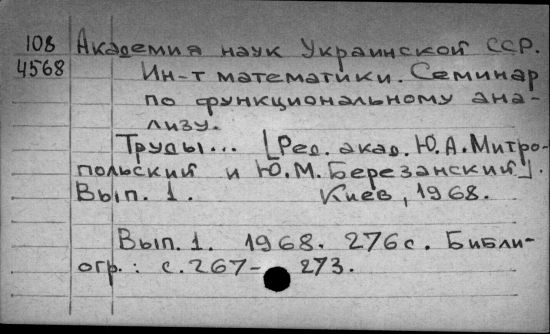 108 Академия наук Украинской ССР.
4568 Ин-т математики. Семинар
по функциональному ана-
лизу.
Труды... [Ред. акад. Ю.А. Митро-
польский и Ю.М. Березанский].
Вып. 1. Киев, 1968.
Вып. 1. 1968. 276 с. Библи-
огр.: с. 267- 273.